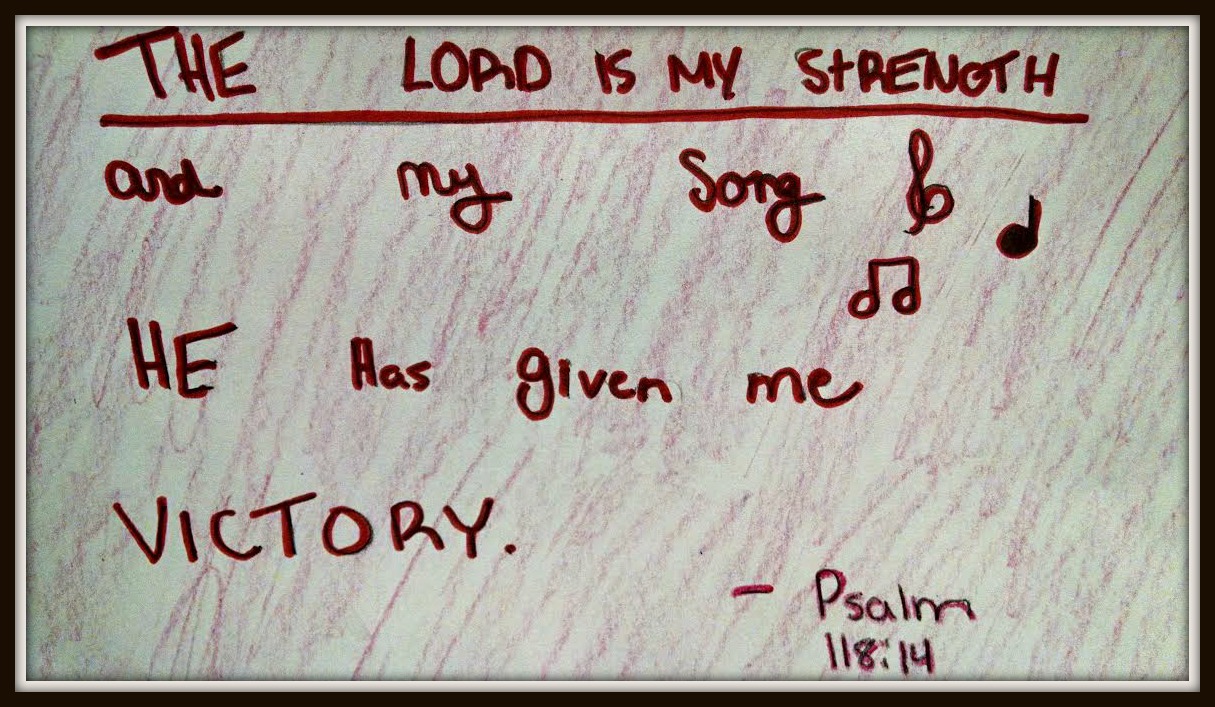 THE LORD IS MY STRENGTH
and my Song
HE Has given me
VICTORY.
- Psalm
118:14